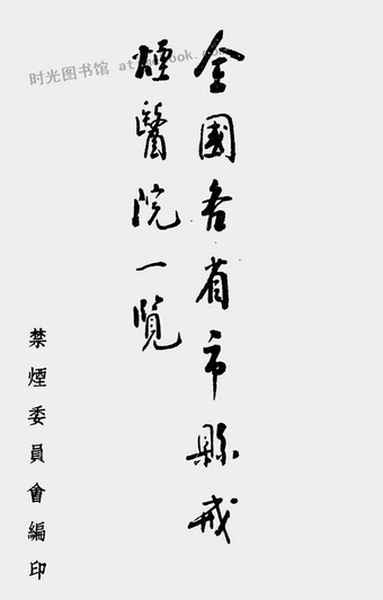 全國各省市縣戒
煙醫院一覽
禁煙委員會編印
时光图书馆